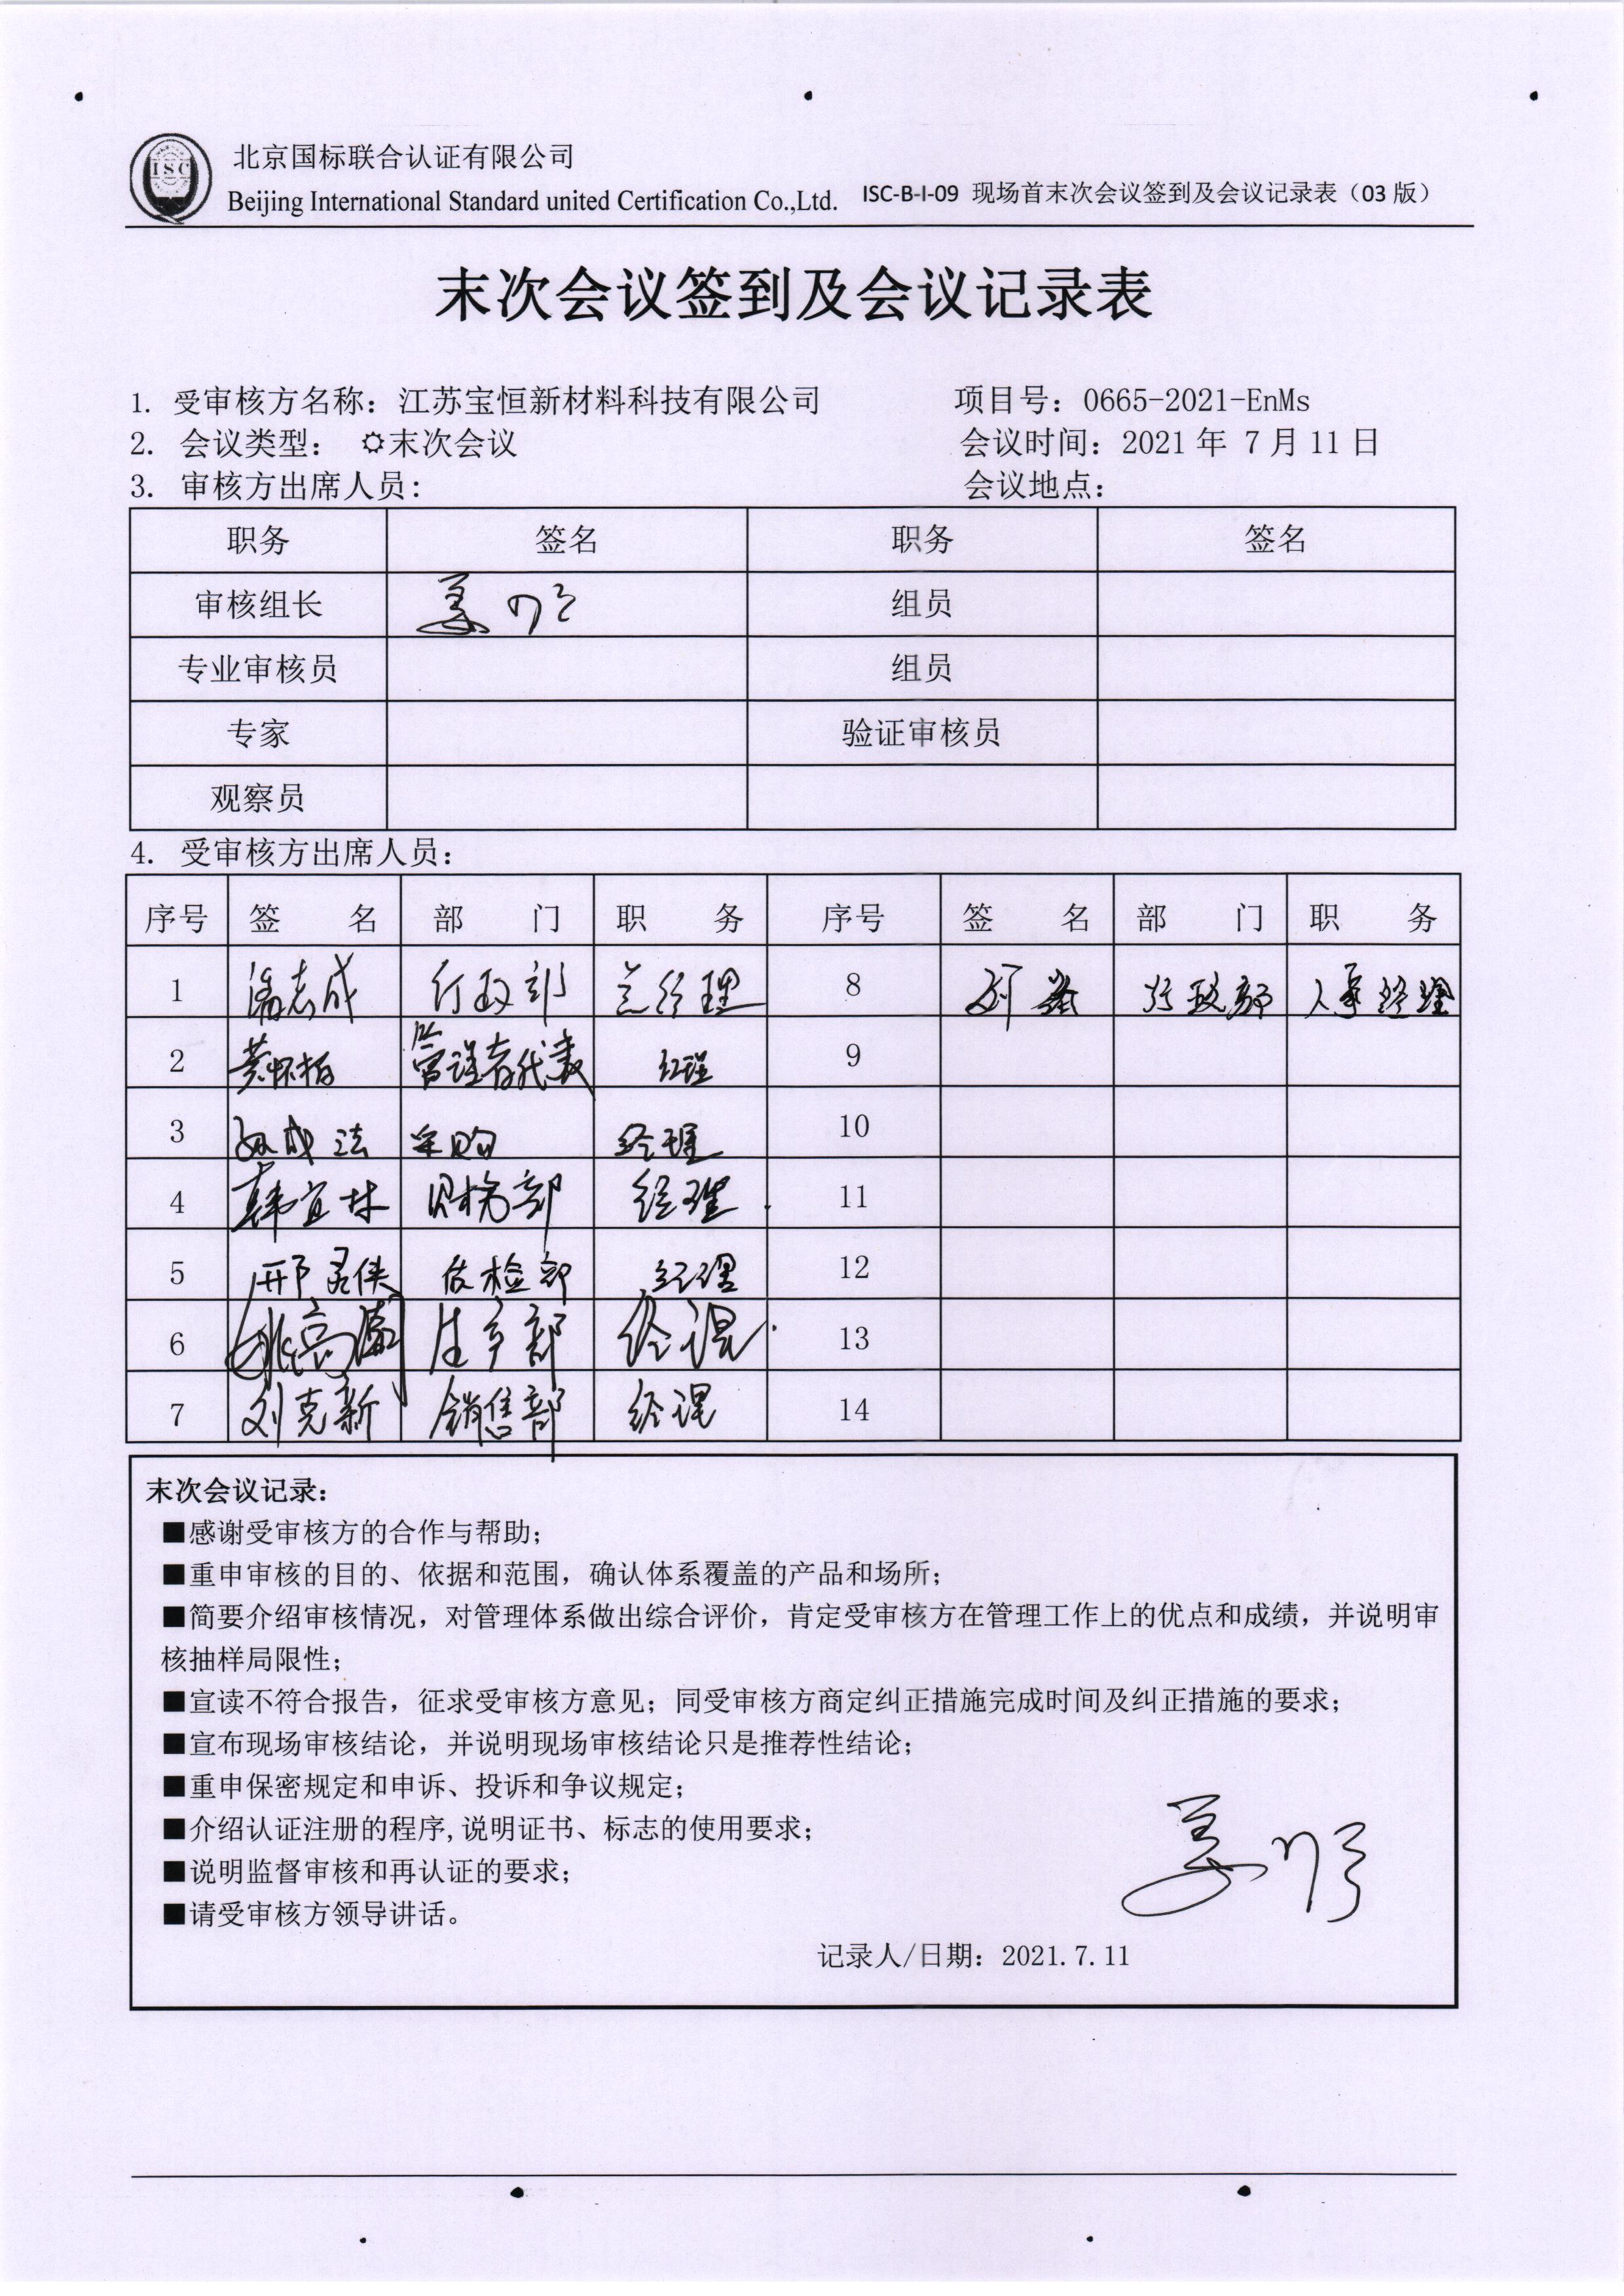 ISC
北京国标联合认证有限公司
Beijing International Standard united Certification Co.,Ltd. ISC-B-I-09 现场首末次会议签到及会议记录表（03 版）
末次会议签到及会议记录表
1. 受审核方名称：江苏宝恒新材料科技有限公司 项目号：0665-2021-EnMs
2. 会议类型： ☼末次会议 会议时间：2021 年 7 月 11 日
3. 审核方出席人员： 会议地点：
职务 签名 职务 签名
审核组长 姜 组员
专业审核员 组员
专家 验证审核员
观察员
4. 受审核方出席人员：
序号 签 名 部 门 职 务 序号 签 名 部 门 职 务
1 潘志成 行政部 总经理 8 行政部 人事经理
2 黄怀柏 管理者代表 经理 9
3 成法 采购 经理 10
4 韩宜林 财务部 经理 11
5 邢 质检部 经理 12
6 姚高 生产部 经理 13
7 刘克新 销售部 经理 14
末次会议记录：
■感谢受审核方的合作与帮助；
■重申审核的目的、依据和范围，确认体系覆盖的产品和场所；
■简要介绍审核情况，对管理体系做出综合评价，肯定受审核方在管理工作上的优点和成绩，并说明审
核抽样局限性；
■宣读不符合报告，征求受审核方意见；同受审核方商定纠正措施完成时间及纠正措施的要求；
■宣布现场审核结论，并说明现场审核结论只是推荐性结论；
■重申保密规定和申诉、投诉和争议规定；
■介绍认证注册的程序,说明证书、标志的使用要求；
■说明监督审核和再认证的要求；
■请受审核方领导讲话。
姜
记录人/日期：2021.7.11